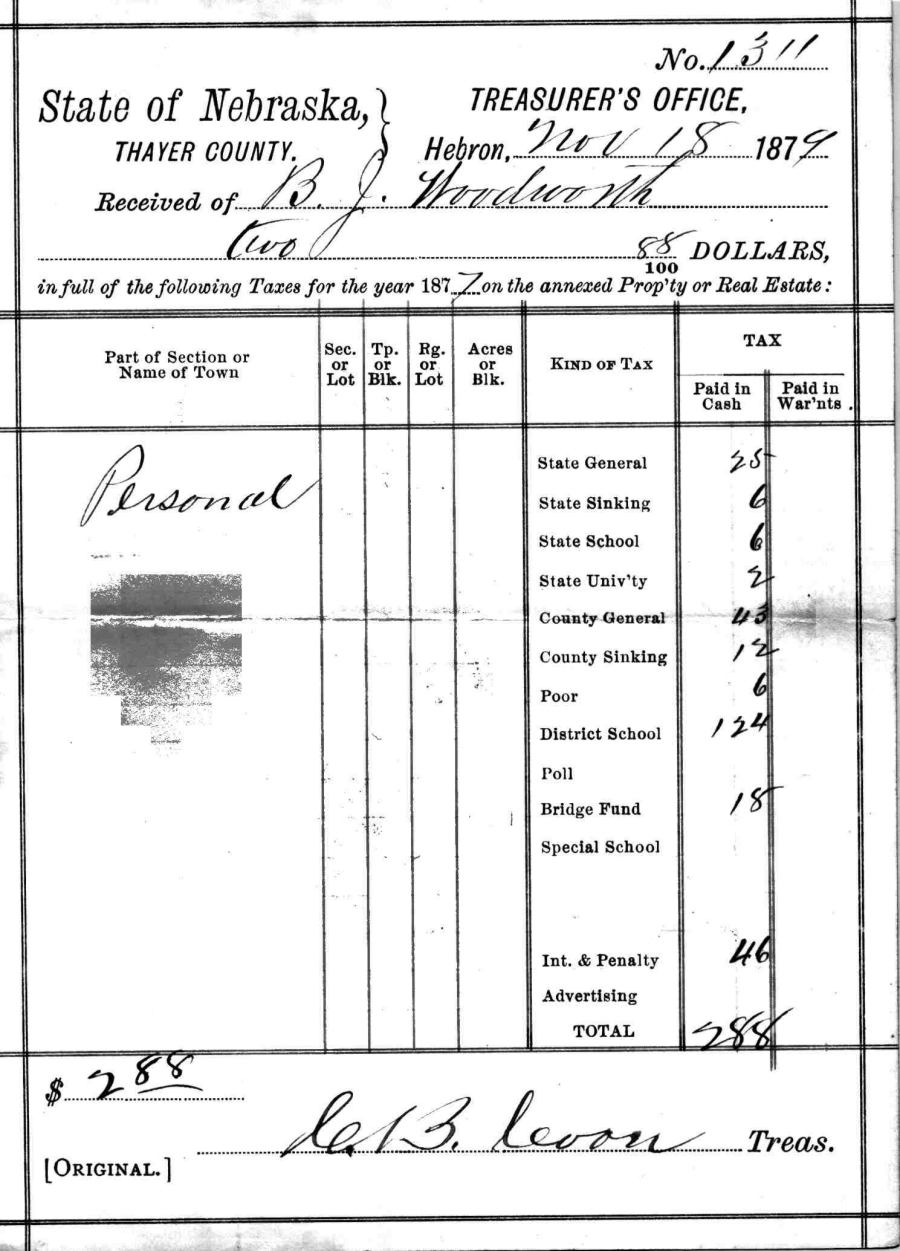 No. 1311
State of Nebraska,
THAYER COUNTY.
TREASURER'S OFFICE,
Hebron, Nov 18 1879
Received of B. J. Woodworth
two 88/100 DOLLARS,
in full of the following Taxes for the year 1877 on the annexed Prop'ty or Real Estate:
Part of Section or Name of Town Sec. or Lot Tp. or Blk. Rg. or Lot Acres or Blk. KIND OF TAX TAX
Paid in Cash Paid in War'nts.
Personal
State General 25
State Sinking 6
State School 6
State Univ'ty 2
County General 43
County Sinking 12
Poor 6
District School 124
Poll
Bridge Fund 18
Special School
Int. & Penalty 46
Advertising
TOTAL 288
$ 2 88
B. Treas.
[ORIGINAL.]